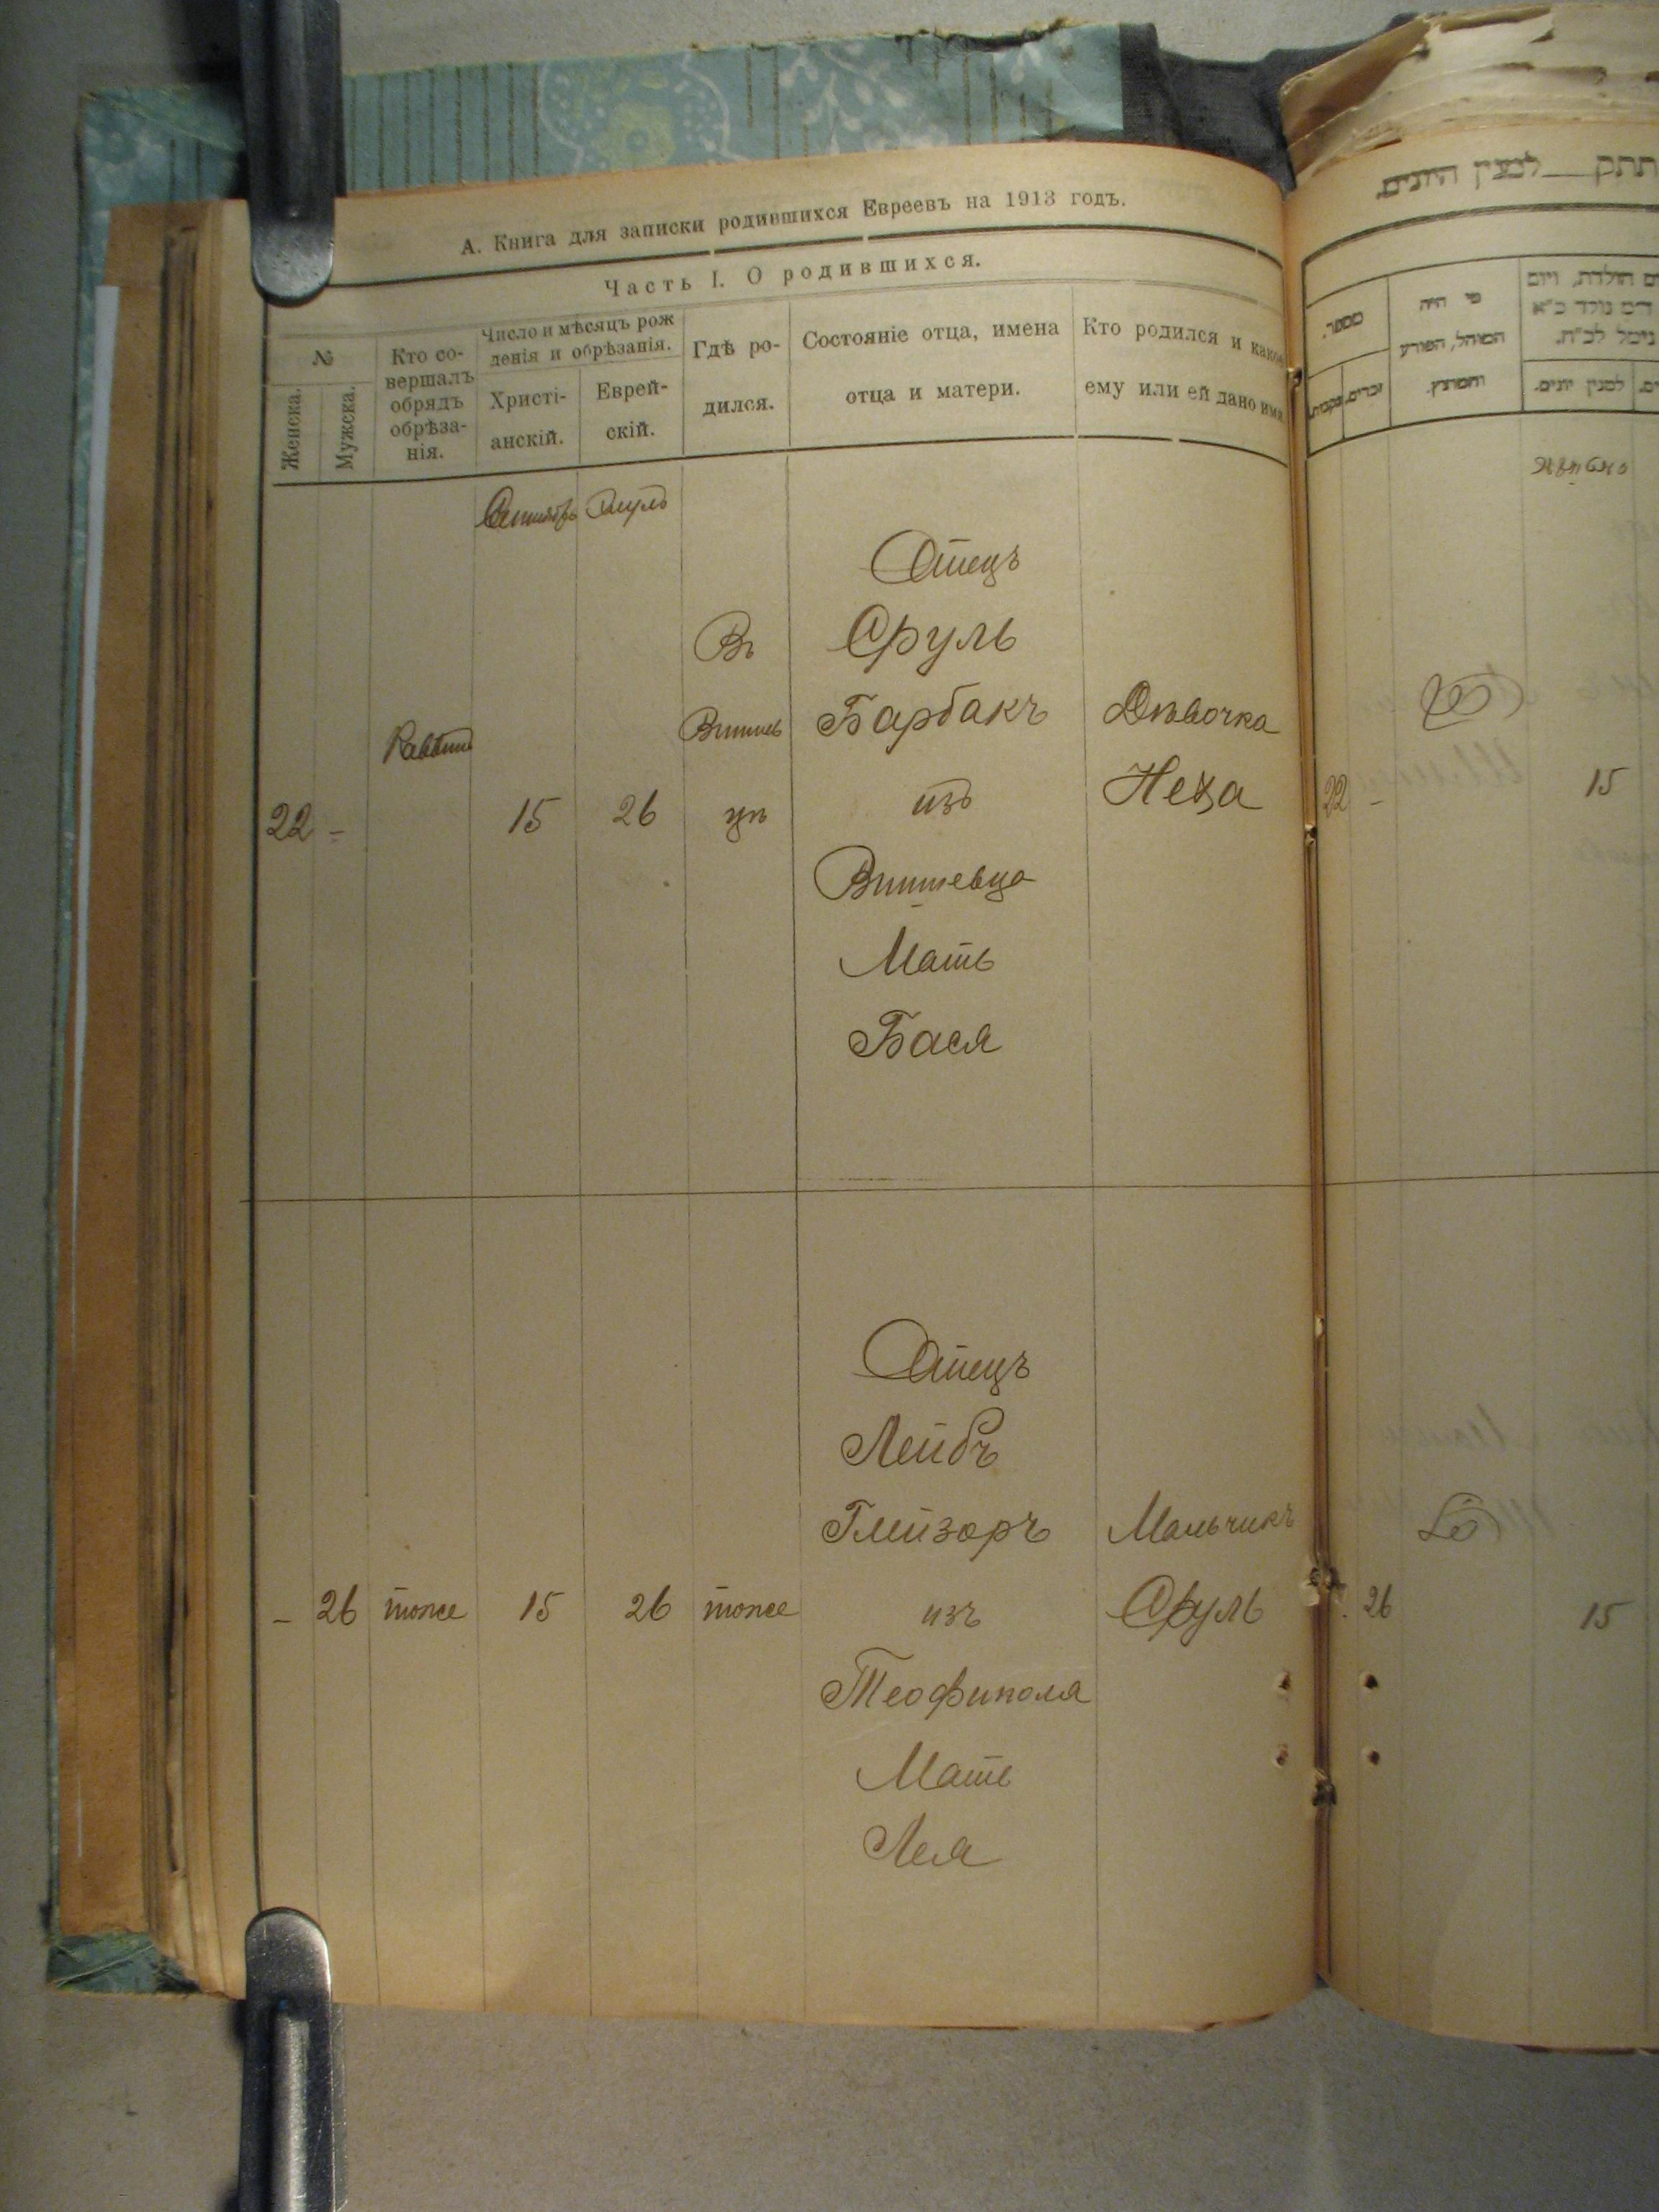 А. Книга для записки родившихся Евреевъ на 1913 годъ.
Часть I. О родившихся.
№
Женска.
Мужска.
Кто со-
вершалъ
обрядъ
обрѣза-
нія.
Число и мѣсяцъ рож
денія и обрѣзанія.
Христі-
анскій.
Еврей-
скій.
Гдѣ ро-
дился.
Состояніе отца, имена
отца и матери.
Кто родился и какое
ему или ей дано имя
Сентябрь Элулъ
22 – Раввинъ 15 26
Въ
Вишнев
цѣ
Отецъ
Сруль
Барбакъ
изъ
Вишневца
Мать
Бася
Дѣвочка
Неха
– 26 тоже 15 26 тоже
Отецъ
Лейбъ
Глейзоръ
изъ
Теофиполя
Мать
Лея
Мальчикъ
Сруль
מספר.
זכרים.
נקבות.
מי היה
המוהל, הפורע
והמוצץ.
למנין יונים.
למנין היונים
22 –
15
26
15